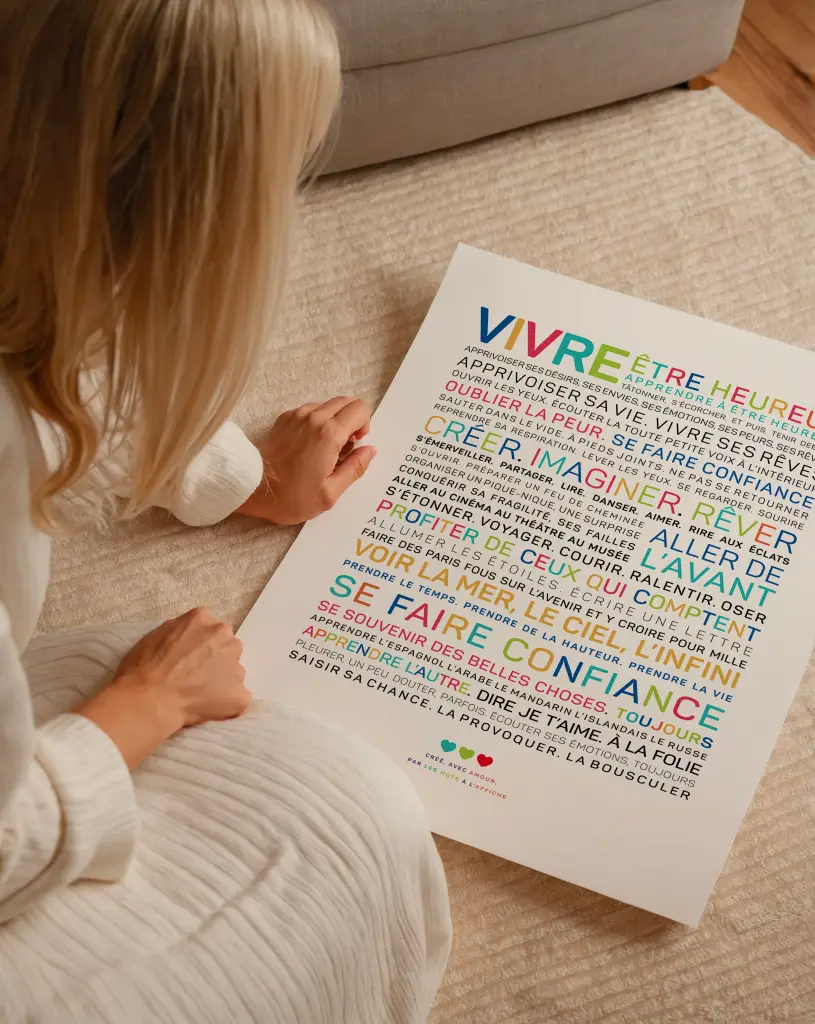 VIVRE ÊTRE HEUREU
APPRENDRE À ÊTRE HEURE
TÂTONNER, S'ÉCORCHER, ET PUIS, TENIR
APPRIVOISER SES DÉSIRS, SES ENVIES, SES ÉMOTIONS, SES PEURS, SES RÊ
APPRIVOISER SA VIE. VIVRE SES RÊVES
OUVRIR LES YEUX. ÉCOUTER LA TOUTE PETITE VOIX À L'INTÉRIEU
OUBLIER LA PEUR. SE FAIRE CONFIANCE
SAUTER DANS LE VIDE, À PIEDS JOINTS. NE PAS SE RETOURNER
REPRENDRE SA RESPIRATION. LEVER LES YEUX. SE REGARDER. SOURIRE
CRÉER. IMAGINER. RÊVER
S'ÉMERVEILLER. PARTAGER. LIRE. DANSER. AIMER. RIRE AUX ÉCLATS
S'OUVRIR PRÉPARER UN FEU DE CHEMINÉE
ORGANISER UN PIQUE-NIQUE, UNE SURPRISE
CONQUÉRIR SA FRAGILITÉ, SES FAILLES
ALLER AU CINÉMA AU THÉÂTRE AU MUSÉE
ALLER DE
L'AVANT
S'ÉTONNER. VOYAGER. COURIR. RALENTIR. OSER
PROFITER DE CEUX QUI COMPTENT
ALLUMER LES ÉTOILES. ÉCRIRE UNE LETTRE
FAIRE DES PARIS FOUS SUR L'AVENIR ET Y CROIRE POUR MILLE
VOIR LA MER, LE CIEL, L'INFINI
PRENDRE LE TEMPS. PRENDRE DE LA HAUTEUR. PRENDRE LA VIE
SE FAIRE CONFIANCE
SE SOUVENIR DES BELLES CHOSES. TOUJOURS
APPRENDRE L'ESPAGNOL L'ARABE LE MANDARIN L'ISLANDAIS LE RUSSE
APPRENDRE L'AUTRE. DIRE JE T'AIME. À LA FOLIE
PLEURER, UN PEU. DOUTER, PARFOIS. ÉCOUTER SES ÉMOTIONS, TOUJOURS
SAISIR SA CHANCE. LA PROVOQUER. LA BOUSCULER
CRÉÉ, AVEC AMOUR,
PAR LES MOTS À L'AFFICHE